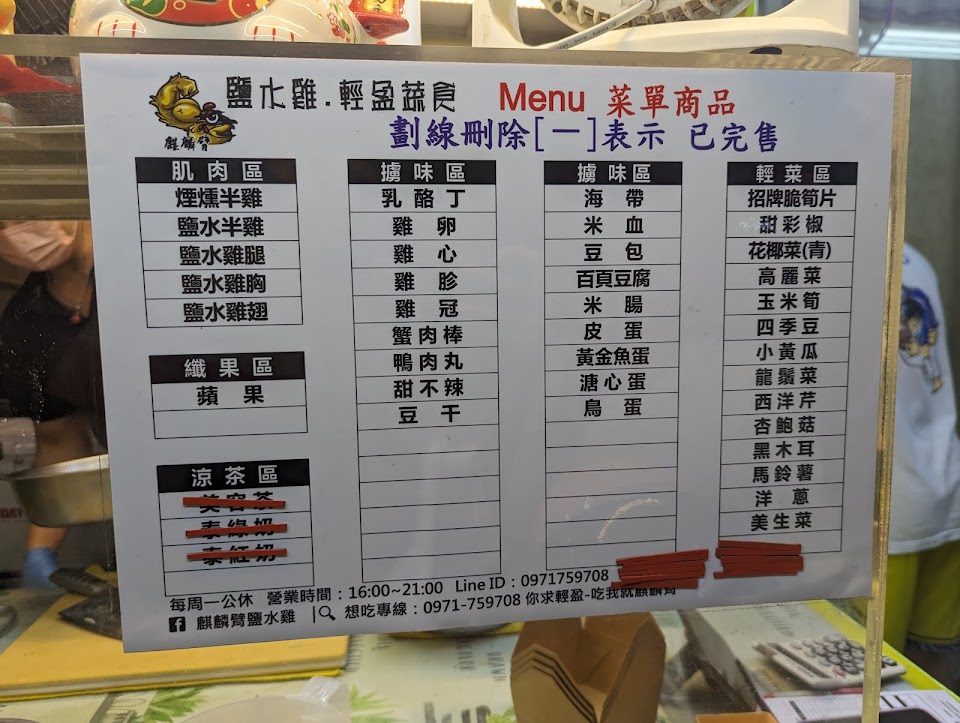 鹽水雞.輕盈蔬食 Menu 菜單商品
麒麟臂
劃線刪除[一]表示 已完售
肌肉區
煙燻半雞
鹽水半雞
鹽水雞腿
鹽水雞胸
鹽水雞翅
纖果區
蘋果
涼茶區
美容茶
泰綠奶
泰紅奶
擄味區
乳酪丁
雞卵
雞心
雞胗
雞冠
蟹肉棒
鴨肉丸
甜不辣
豆干
擄味區
海帶
米血
豆包
百頁豆腐
米腸
皮蛋
黃金魚蛋
溏心蛋
鳥蛋
輕菜區
招牌脆筍片
甜彩椒
花椰菜(青)
高麗菜
玉米筍
四季豆
小黃瓜
龍鬚菜
西洋芹
杏鮑菇
黑木耳
馬鈴薯
洋蔥
美生菜
每周一公休 營業時間：16:00~21:00 Line ID：0971759708
麒麟臂鹽水雞 想吃專線：0971-759708 你求輕盈-吃我就麒麟臂